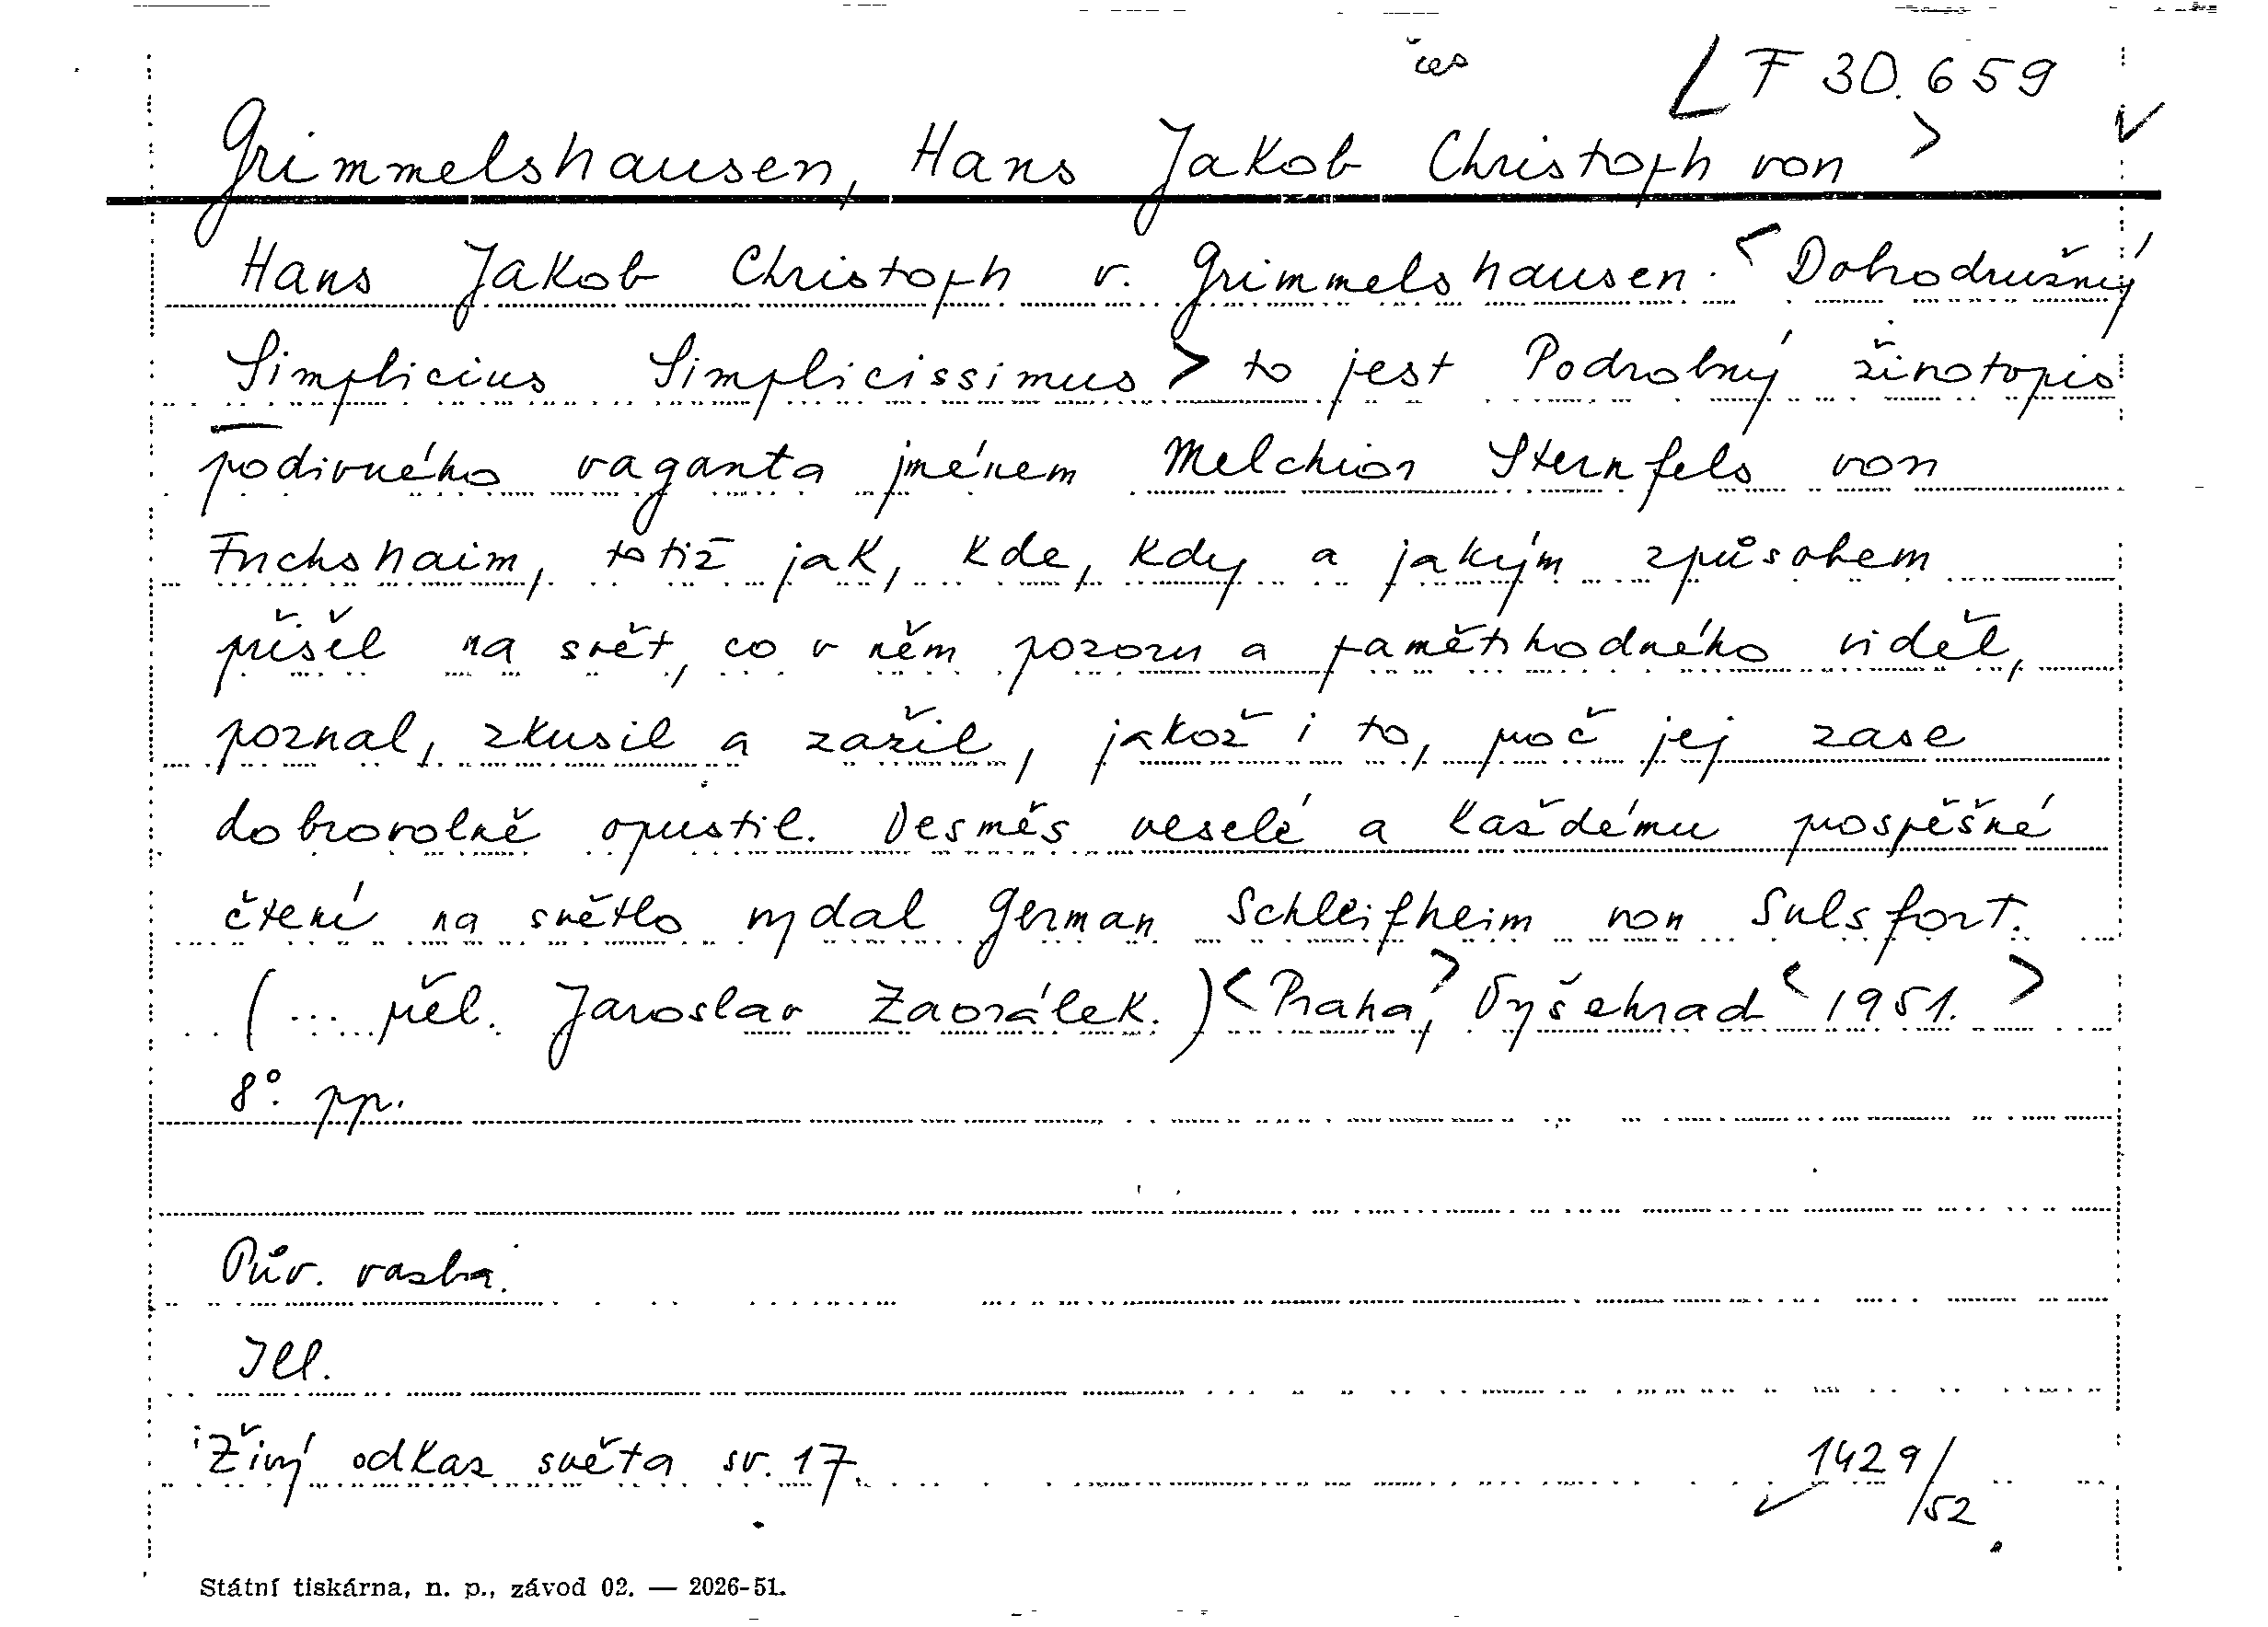 čes
F 30.659
Grimmelshausen, Hans Jakob Christoph von >
Hans Jakob Christoph v. Grimmelshausen. < Dobrodružný
Simplicius Simplicissimus > to jest Podrobný životopis
podivného vaganta jménem Melchior Sternfels von
Fuchshaim, totiž jak, kde, kdy a jakým způsobem
přišel na svět, co v něm pozoru a pamětihodného viděl,
poznal, zkusil a zažil, jakož i to, proč jej zase
dobrovolně opustil. Vesměs veselé a každému prospěšné
čtení na světlo vydal German Schleifheim von Sulsfort.
(... přel. Jaroslav Zaorálek.) < Praha, > Vyšehrad < 1951. >
8°. pp.
Pův. vazba.
Ill.
Živý odkaz světa sv. 17.
1429/52
Státní tiskárna, n. p., závod 02. — 2026-51.